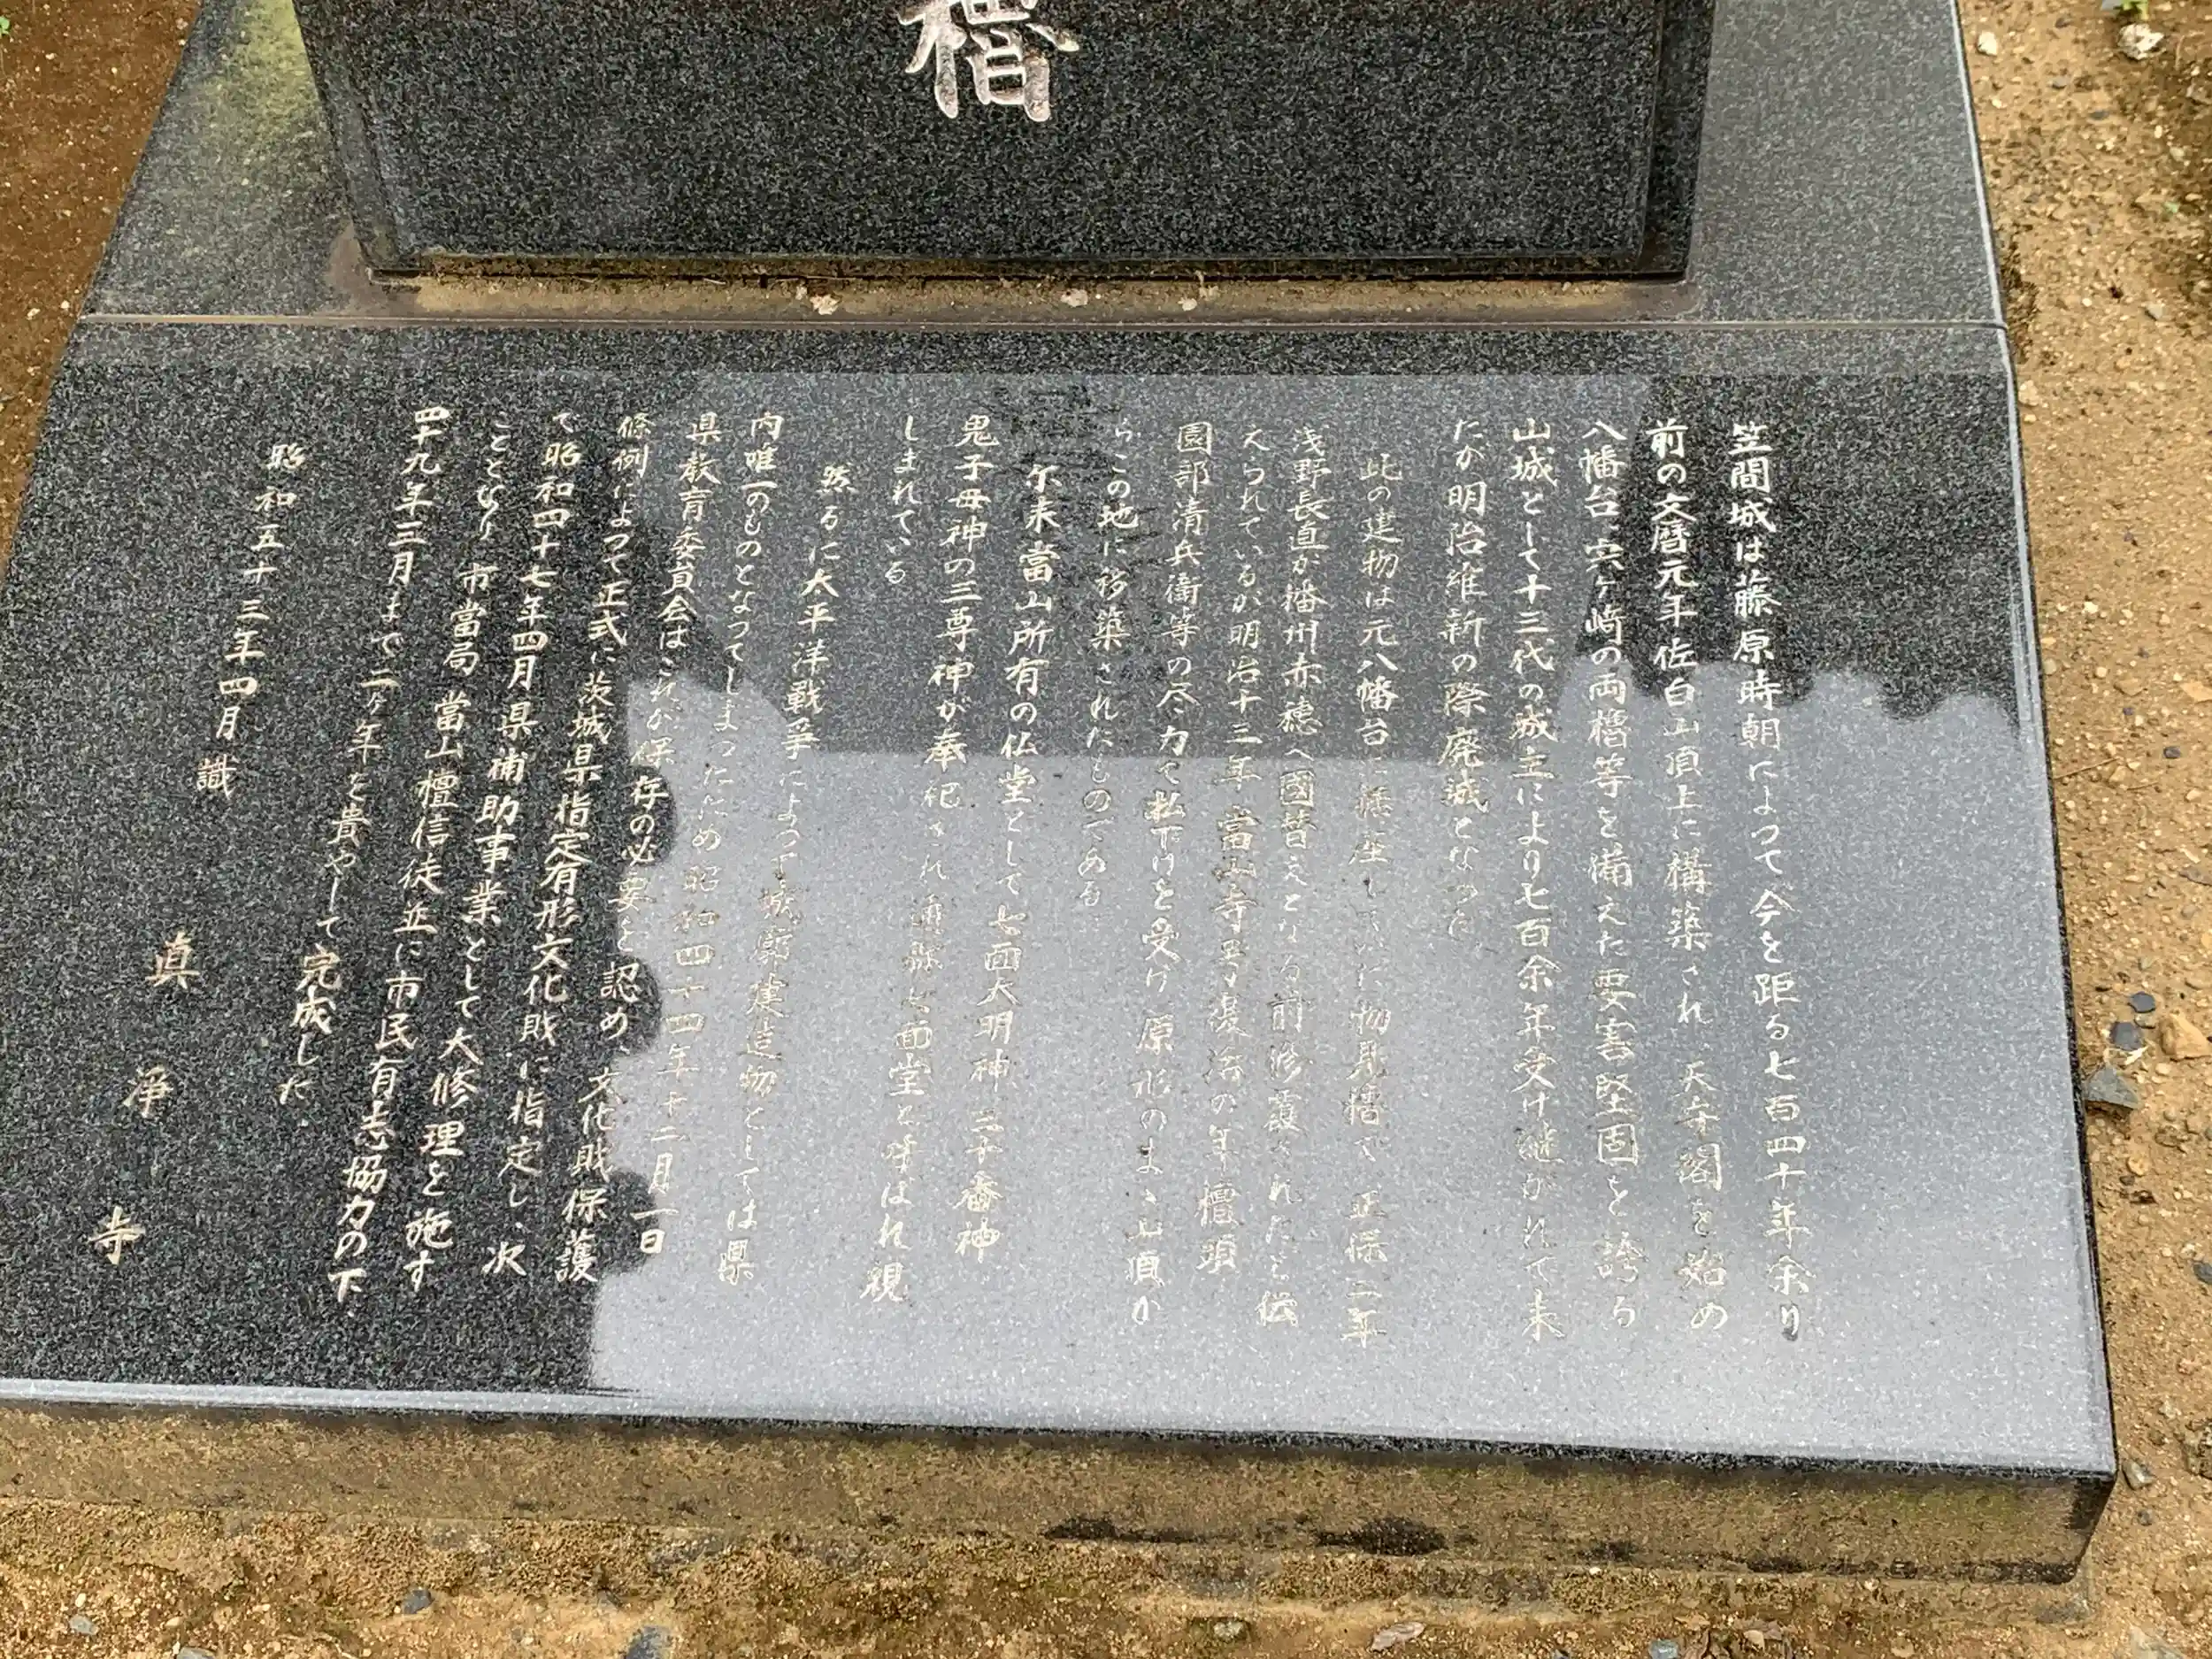 櫓
笠間城は藤原時朝によって今を距る七百四十年余り
前の文暦元年佐白山頂上に構築され、天守閣を始め
八幡台、宍ヶ﨑の両櫓等を備えた要害堅固を誇る
山城として十三代の城主により七百余年受け継がれて来
たが明治維新の際廃城となった
此の建物は元八幡台に構座していた物見櫓で、正保二年
浅野長直が播州赤穂へ國替えとなる前修覆されたと伝
えられているが明治十三年當山寺号復活の年檀頭
園部清兵衛等の尽力で払下げを受け原形のまゝ山頂か
らこの地に移築されたものである
尓来當山所有の仏堂として七面大明神、三十番神
鬼子母神の三尊神が奉祀され通称七面堂と呼ばれ親
しまれている
然るに太平洋戦争によって城廓建造物としては県
内唯一のものとなってしまったため昭和四十四年十二月一日
県教育委員会はこれが保存の必要を認め文化財保護
條例によって正式に茨城県指定有形文化財に指定し、次
で昭和四十七年四月県補助事業として大修理を施す
こととなり市當局當山檀信徒並に市民有志協力の下
四十九年三月まで二ヶ年を費やして完成した
昭和五十三年四月識
真浄寺